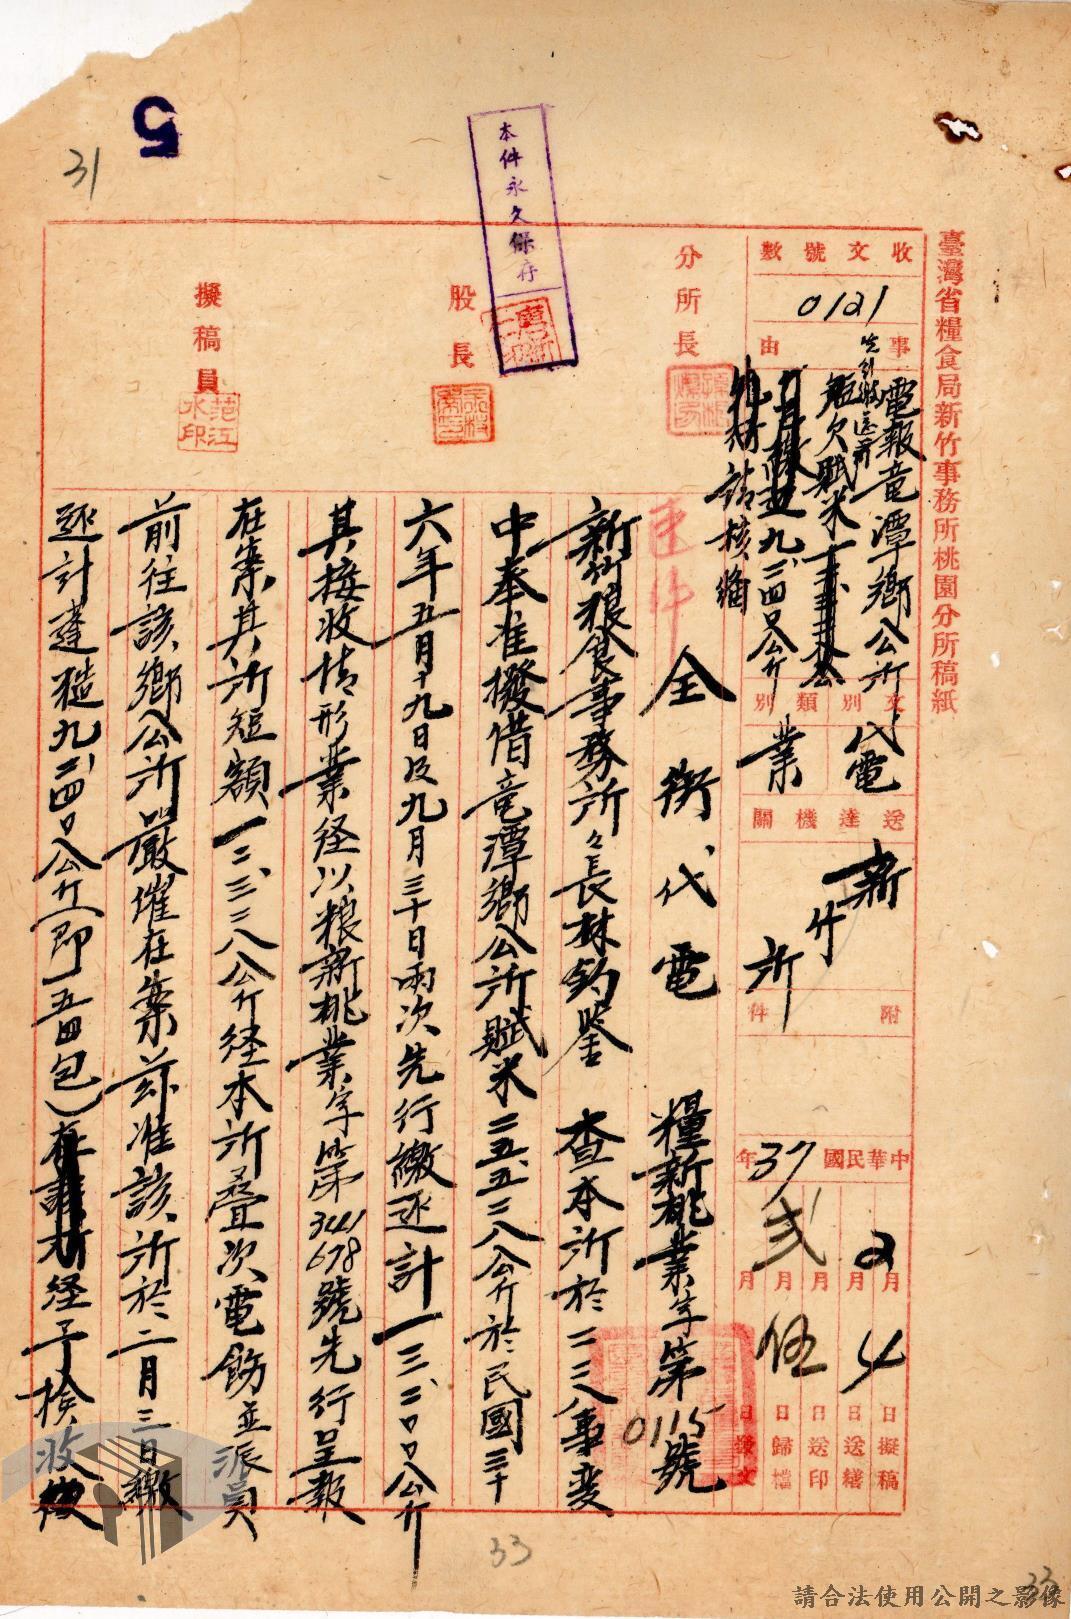 臺灣省糧食局新竹事務所桃園分所稿紙
收文號數
0121
事由
電報竜潭鄉公所
短欠賦米
九、二四〇公斤
請核備
文別
代電
類別
業
送達機關
新竹所
附件
中華民國37年
2月4日擬稿
月日送繕
月日送印
貳月伍日歸檔
月日發文
分所長
股長
擬稿員
本件永久保存
范江水印
速件
全銜代電
糧新桃業字第0115號
新竹粮食事務所々長林鈞鑒 查本所於二二八事変
中奉准撥借竜潭鄉公所賦米二五、五二八公斤於民國三十
六年五月十九日及九月三十日兩次先行繳还計一三、二〇〇公斤
其接收情形業経以粮新桃業字第341 678號先行呈報
在案其所短額一二、三二八公斤経本所叠次電飭並派員
前往該鄉公所嚴催在案茲准該所於二月三日繳
还計蓬糙九、二四〇公斤(即一五四包)経予検收
5
31
33
33
請合法使用公開之影像